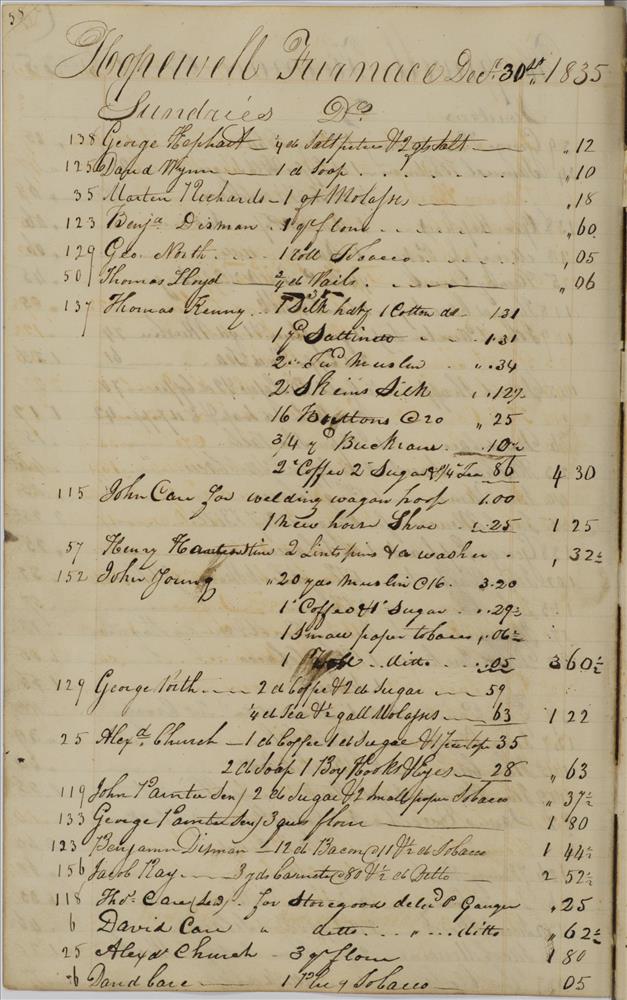 Hopewell Furnace Decr. 30th 1835
Sundries Drs
138 George Hephart - 1/4 lb Saltpetre & 2 qts Salt - " 12
125 David Wynn - 1 lb Soap . . . . . . . " 10
35 Marten Richards - 1 qt Molasses - " 18
123 Benja. Disman . 1 qr flour . . . . . " 60
129 Geo. North . . . 1 roll Tobacco . . . . , 05
50 Thomas Lloyd - lb Nails . . . . . " 06
137 Thomas Kenny . . 1 Silk hdkf 1 Cotton do - 1 31
1 yd Sattinett . . . 1.31
2 yd Muslin . . " .34
2 Skeins Silk , .12½
16 Buttons @20 " 25
3/4 yd Buckram . .10½
2" Coffee 2" Sugar & 1/4" Tea 86 4 30
115 John Care for welding wagon hoop 1.00
1 New horse Shoe . . .25 1 25
57 Henry 2 Lintspins & a washer . , 32½
152 John Young " 20 yds Muslin @16. 3.20
1" Coffee & 1" Sugar . . .29½
1 Small paper tobacco , .06½
1 Roll . . ditto . . .05 3 60½
129 George North - 2 lb Coffee & 2 lb Sugar - 59
1/4 lb Tea & ½ gall Molasses - 63 1 22
25 Alexd. Church - 1 lb Coffee 1 lb Sugar & 1 35
2 lb Soap 1 Box Hooks & Eyes - 28 " 63
119 John Painter Sen/ 2 lb Sugar & 2 Small paper Tobacco " 37½
133 George Painter Sen/ 3 qrs flour - 1 80
123 Benjamin Disman - 12 lb Bacon @11 & ½ lb Tobacco 1 44½
156 Jacob Kay - 3 yds @80 & ½ lb Ditto - 2 52½
118 Thos. Care for Storegood deled P Gauger " 25
6 David Care " ditto . . . " . . . ditto " 62½
25 Alexdr Church - 3 qr flour 1 80
6 David Care - 1 Plug Tobacco - 05